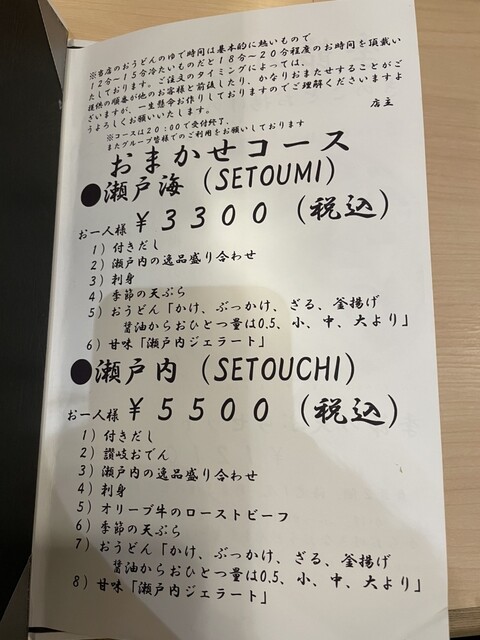 ※当店のおうどんのゆで時間は基本的に熱いもので
12分～15分冷たいものだと18分～20分程度のお時間を頂戴い
たしております。ご注文のタイミングによっては、
提供の順番が他のお客様と前後したり、かなりおまたせすることがご
ざいますが、一生懸命お作りしておりますのでご理解くださいますよ
うよろしくお願いいたします。
店主
※コースは20：00で受付終了、
またグループ皆様でのご利用をお願いしております
おまかせコース
●瀬戸海（SETOUMI）
お一人様￥3300（税込）
1）付きだし
2）瀬戸内の逸品盛り合わせ
3）刺身
4）季節の天ぷら
5）おうどん「かけ、ぶっかけ、ざる、釜揚げ
醤油からおひとつ量は0.5、小、中、大より」
6）甘味「瀬戸内ジェラート」
●瀬戸内（SETOUCHI）
お一人様￥5500（税込）
1）付きだし
2）讃岐おでん
3）瀬戸内の逸品盛り合わせ
4）刺身
5）オリーブ牛のローストビーフ
6）季節の天ぷら
7）おうどん「かけ、ぶっかけ、ざる、釜揚げ
醤油からおひとつ量は0.5、小、中、大より」
8）甘味「瀬戸内ジェラート」